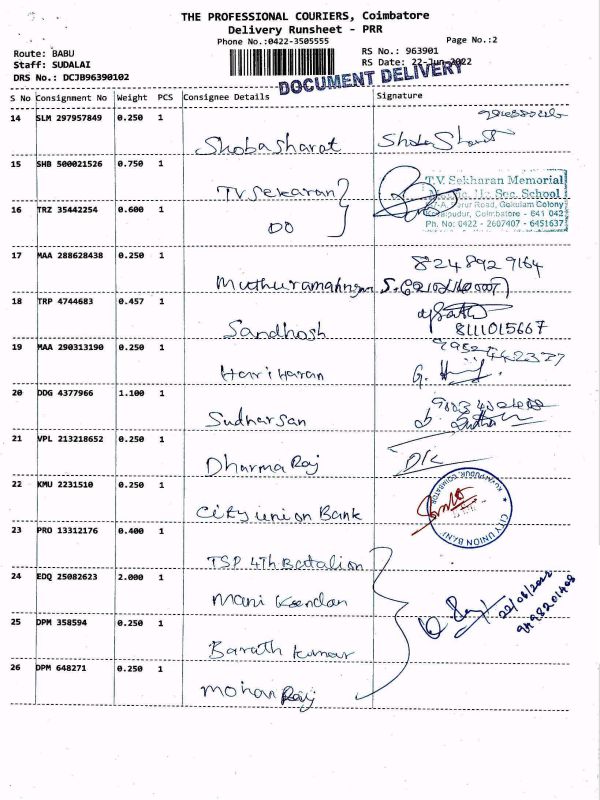 THE PROFESSIONAL COURIERS, Coimbatore
Delivery Runsheet - PRR
Phone No.:0422-3505555
Page No.:2
Route: BABU
RS No.: 963901
Staff: SUDALAI
RS Date: 22-Jun-2022
DRS No.: DCJB96390102
DOCUMENT DELIVERY
S No Consignment No Weight PCS Consignee Details Signature
14 SLM 297957849 0.250 1
Shobasharat
15 SHB 500021526 0.750 1
T.V. Sekaran
T.V. Sekharan Memorial
Sec. School
Road, Gokulam Colony
Coimbatore - 641 042
Ph. No: 0422 - 2607407 - 6451637
16 TRZ 35442254 0.600 1
DO
17 MAA 288628438 0.250 1
8248929164
18 TRP 4744683 0.457 1
Sandhosh
8111015667
19 MAA 290313190 0.250 1
Hariharan
20 DDG 4377966 1.100 1
Sudharsan
21 VPL 213218652 0.250 1
Dharma Raj
22 KMU 2231510 0.250 1
City union Bank
CITY UNION BANK
23 PRO 13312176 0.400 1
TSP 4th Batalion
24 EDQ 25082623 2.000 1
Mani Kandan
22/06/2022
25 DPM 358594 0.250 1
Barath Kumar
26 DPM 648271 0.250 1
Mohan Raj